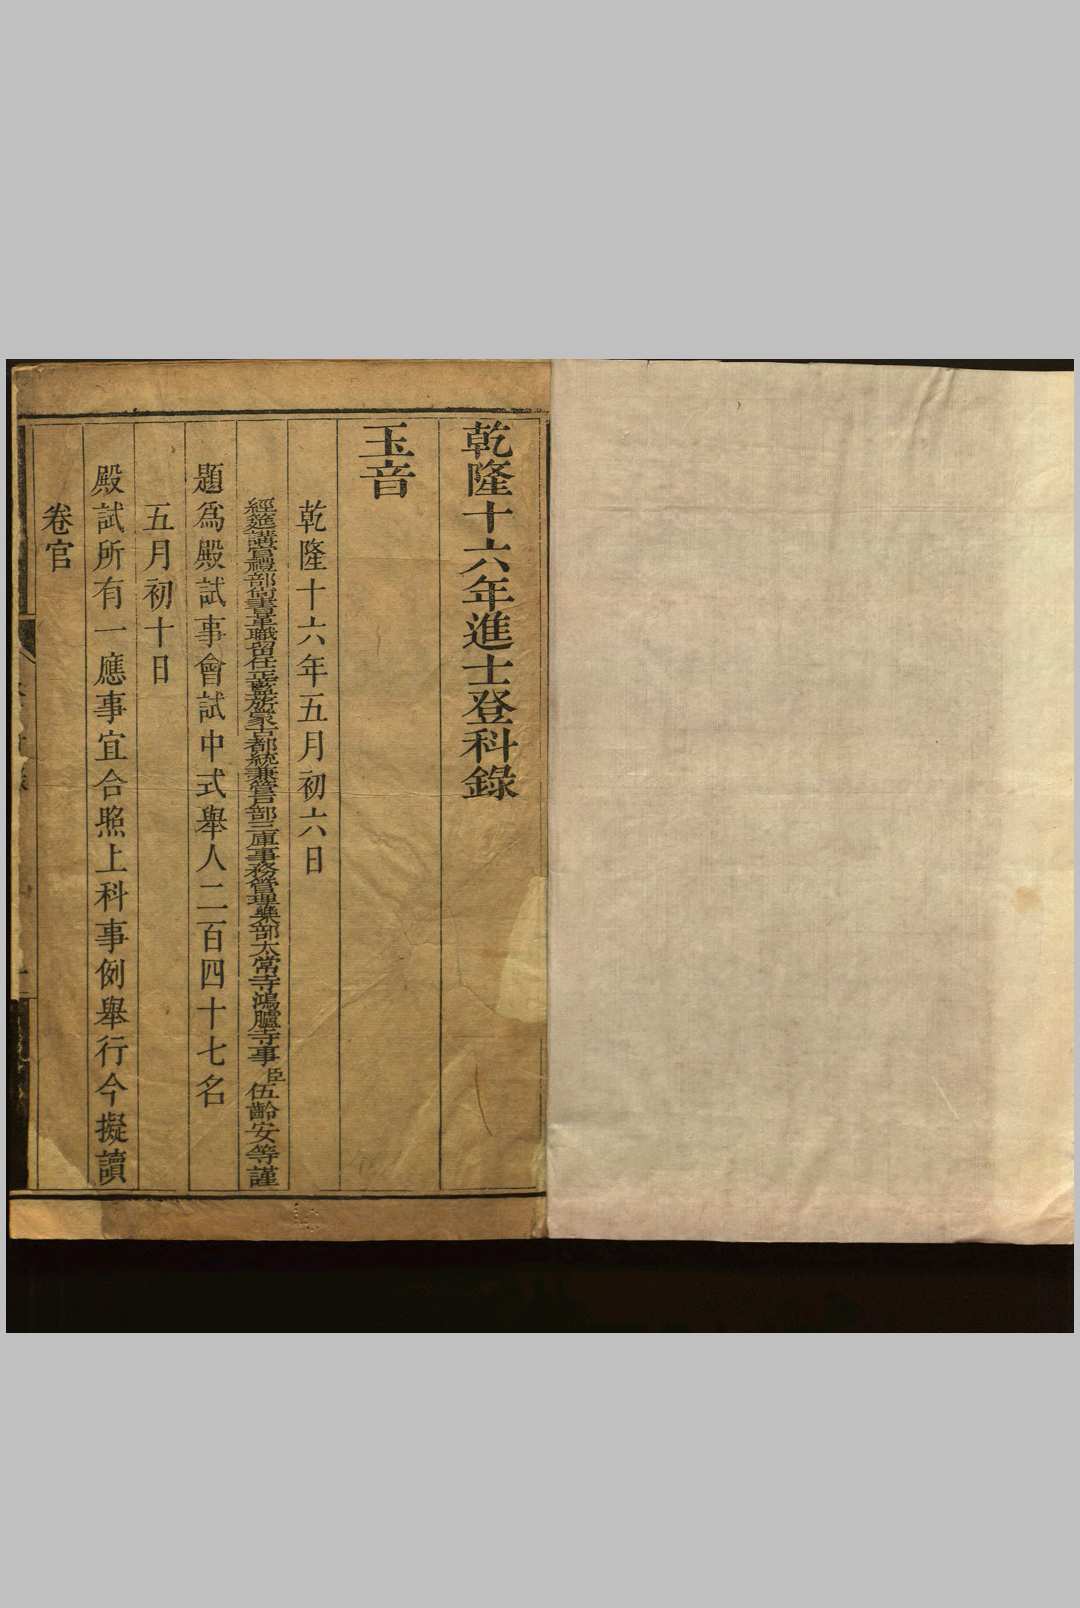 乾隆十六年進士登科錄
玉音
乾隆十六年五月初六日
經筵講官禮部尚書革職留任正藍旂蒙古都統兼管戶部三庫事務管理樂部太常寺鴻臚寺事臣伍齡安等謹
題爲殿試事會試中式舉人二百四十七名
五月初十日
殿試所有一應事宜合照上科事例舉行今擬讀
卷官